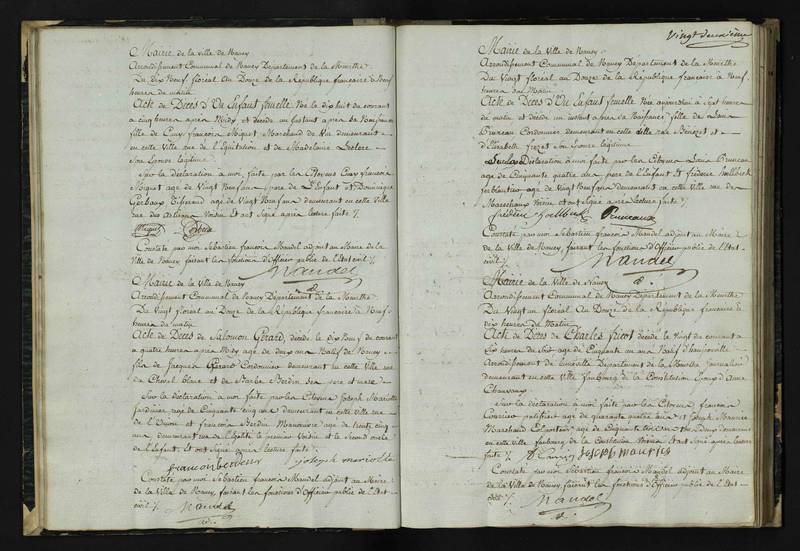 Mairie de la Ville de Nancy
Arrondissement Communal de Nancy Departement de la Meurthe
Du dix Neuf floréal au Douze de la Republique francaise a Neuf
heures du matin
Acte de Deces d'Un Enfant femelle Née le dix huit du courant
a cinq heures apres Midy et décédé un Instant apres sa Naissance
fille de francois Noiget Marchand de demeurant
en cette Ville rue de l'Equitation et de Madelaine Leclerc
Son Epouse légitime
Sur la déclaration à moi faite par les Citoyens francois
Noiget age de Vingt Neuf ans pere de L'Enfant et Dominique
Gerbaux Tisserand age de Vingt Neuf ans demeurant en cette Ville
rue des Artisans Voisin et ont Signé apres lecture faite
Constate par moi Sébastien francois Mandel adjoint au Maire de la
Ville de Nancy faisant les fonctions d'Officier public de l'Etat civil
Mandel
Mairie de la Ville de Nancy
Arrondissement Communal de Nancy Departement de la Meurthe
Du Vingt floréal au Douze de la Republique francaise à Neuf
heures du matin
Acte de Deces de Salomon Gerard, décédé le dix Neuf du courant
a quatre heures apres Midy age de deux ans Natif de Nancy
fils de Jacques Gérard Cordonnier demeurant en cette Ville rue
du Cheval blanc et de Barbe Berdin Ses pere et mere
Sur la déclaration à moi faite par les Citoyens Joseph Mariotte
Jardinier age de Cinquante cinq ans demeurant en cette Ville rue
de et francois Berdin Manoeuvre age de trente cinq
ans, demeurant rue de l'Egalité le premier Voisin et le Second oncle
de l'Enfant, et ont Signé apres lecture faite
francois berdin joseph mariotte
Constate par moi Sébastien francois Mandel adjoint au Maire
de la Ville de Nancy, faisant les fonctions d'Officier public de l'Etat
civil
Mandel
Vingt deuxième
Mairie de la Ville de Nancy
Arrondissement Communal de Nancy Departement de la Meurthe
Du Vingt floréal au Douze de la République francaise à Neuf
heures du Matin
Acte de Deces d'Un Enfant femelle Née aujourd'hui à Sept heures
du matin et décédé un instant apres sa Naissance fille de Louis
Bruneau Cordonnier demeurant en cette Ville rue et
d'Elisabeth frezet Son Epouse légitime
Sur la Déclaration à moi faite par les Citoyens Louis Bruneau
age de Cinquante quatre ans pere de l'Enfant et frédéric
ferblantier age de Vingt Neuf ans demeurant en cette Ville rue des
Marechaux Voisin et ont Signé apres Lecture faite
frédéric Bruneaux
Constate par moi Sébastien francois Mandel adjoint au Maire
de la Ville de Nancy, faisant les fonctions d'Officier public de l'Etat
civil
Mandel
Mairie de la Ville de Nancy
Arrondissement Communal de Nancy Departement de la Meurthe
Du Vingt un floréal au Douze de la République francaise à
dix heures du Matin
Acte de Deces de Charles fricot décédé le Vingt du courant a
Six heures du Soir age de Cinquante un ans Natif d'
Arrondissement de Lunéville Departement de la Meurthe Journalier
demeurant en cette Ville faubourg de la Constitution Epoux d'Anne
Chaussoux
Sur la déclaration à moi faite par les Citoyens francois
Courrier age de quarante quatre ans et Joseph Maurice
Marchand age de Cinquante ans tous deux demeurant
en cette Ville faubourg de la Constitution Voisins et ont Signé apres lecture
faite joseph maurice
Constate par moi Sébastien francois Mandel adjoint au Maire
de la Ville de Nancy, faisant les fonctions d'Officier public de l'Etat
civil
Mandel